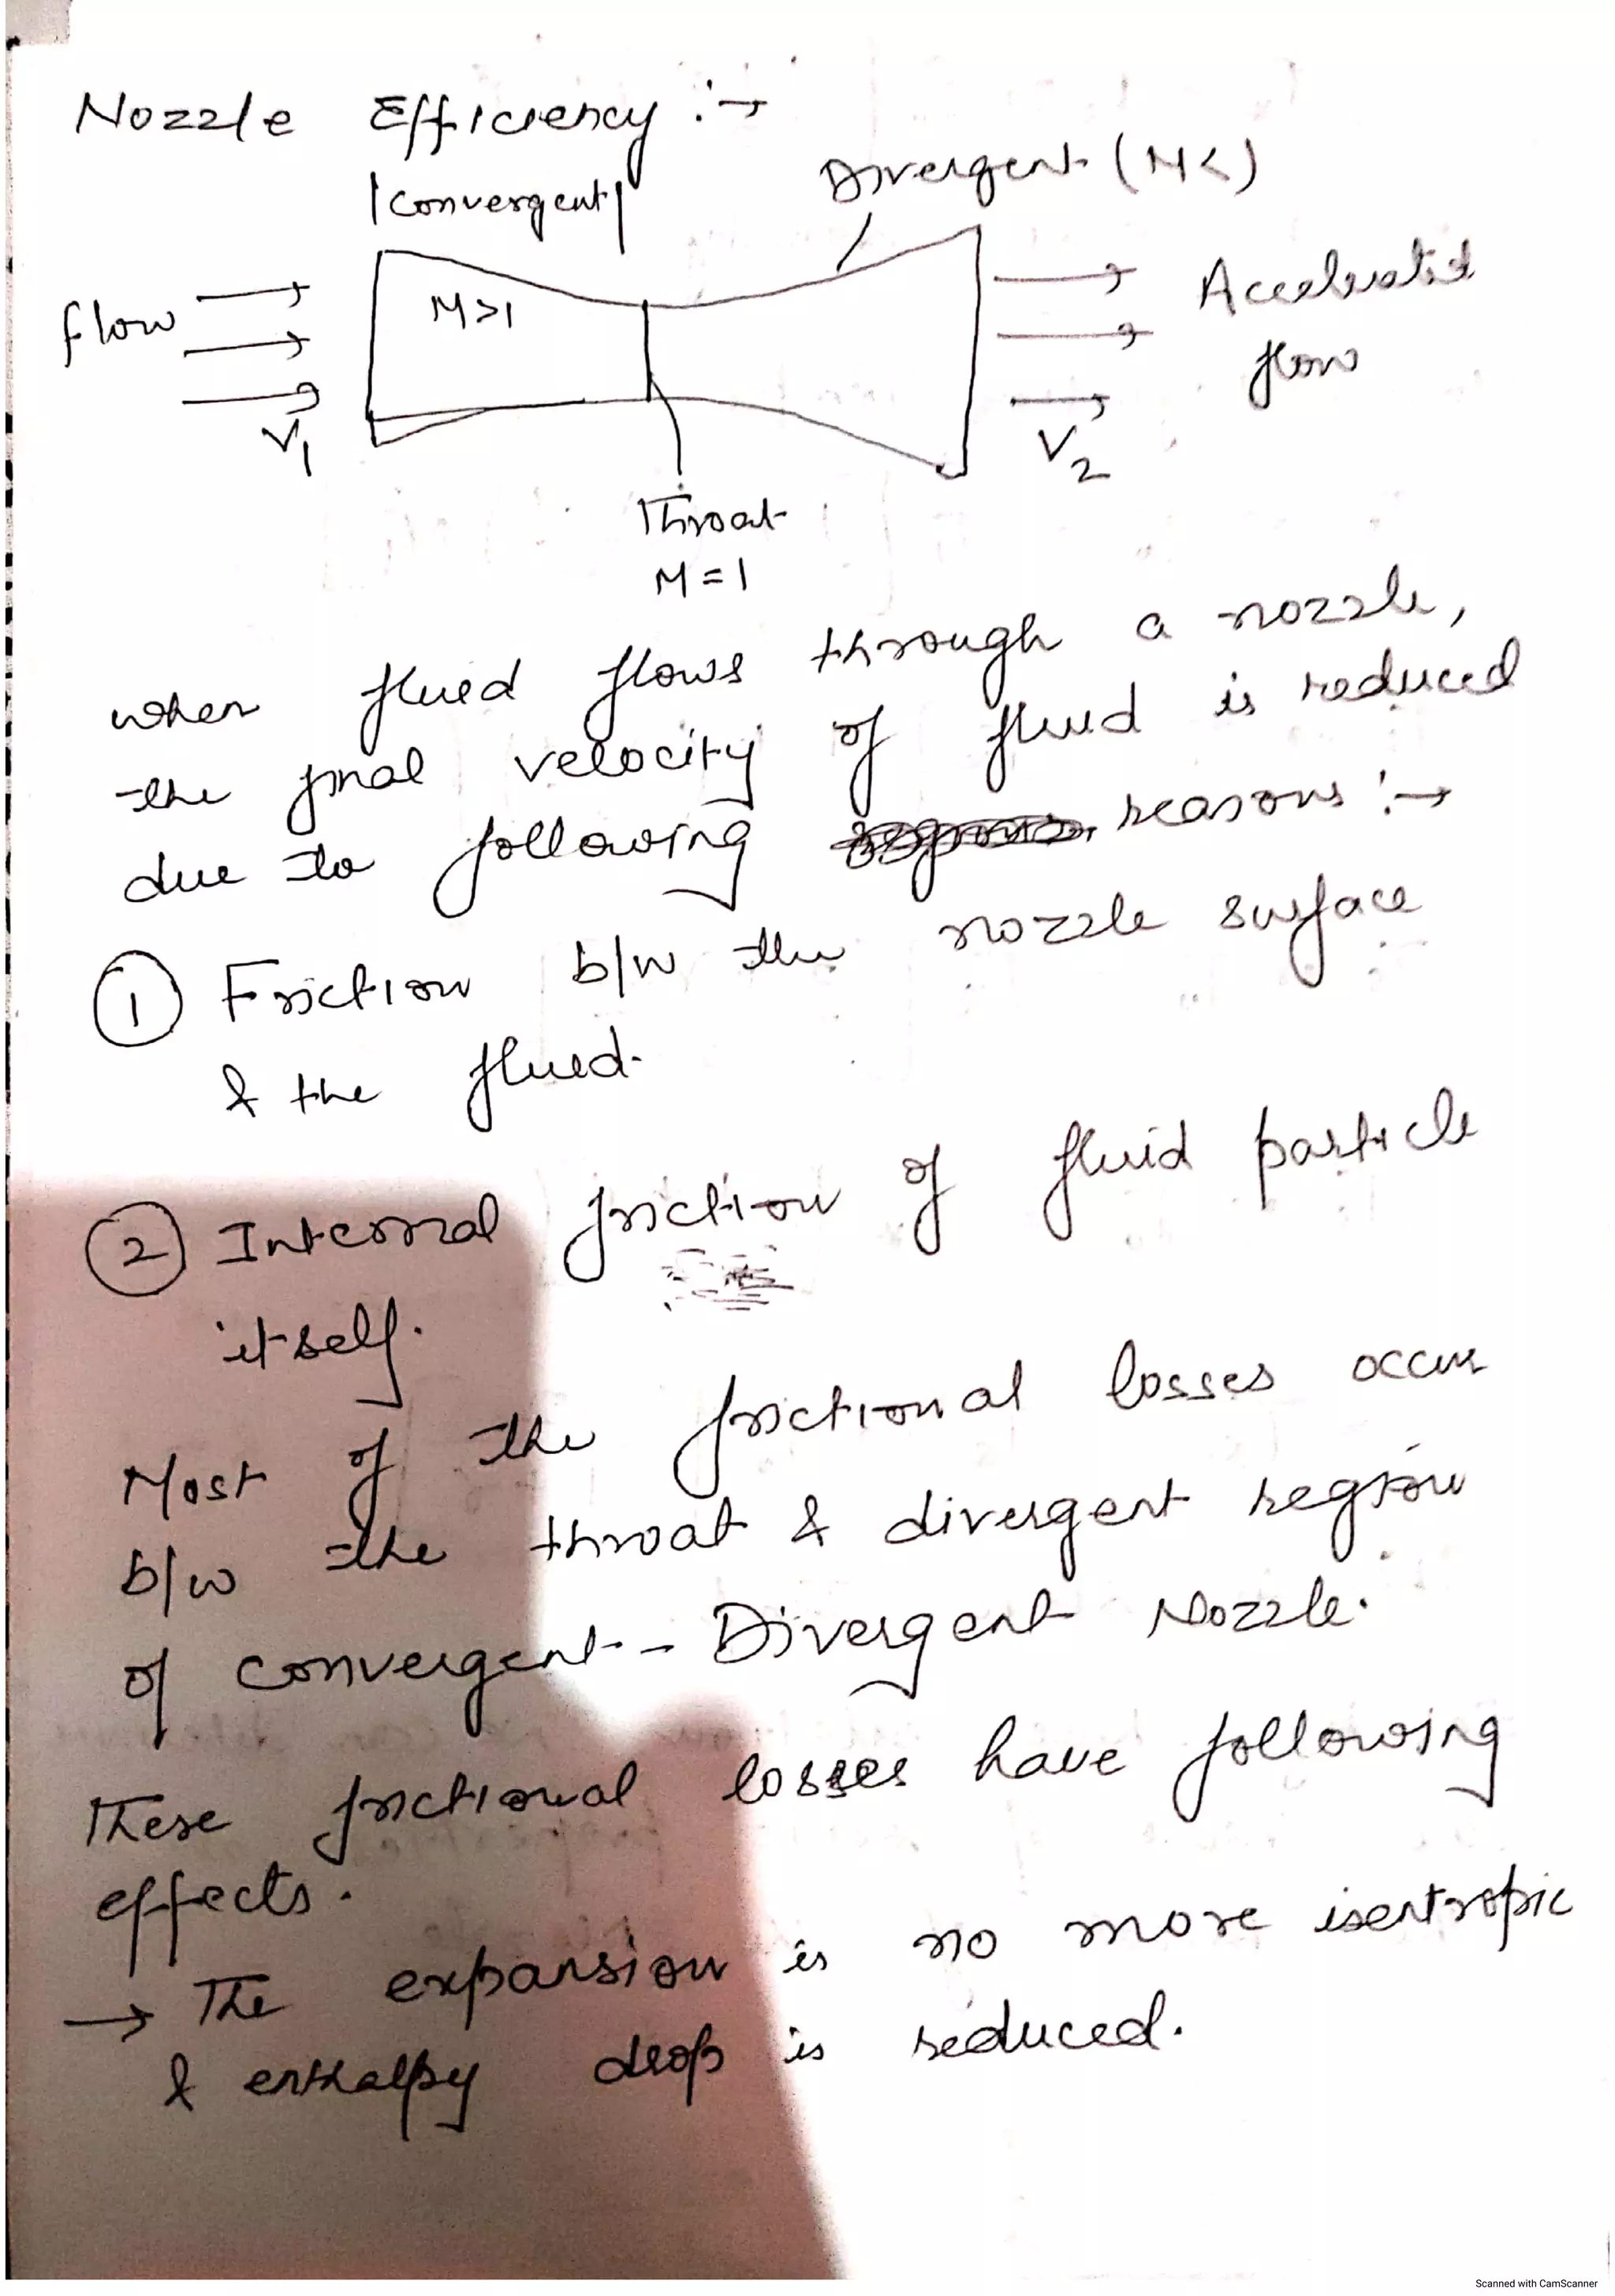 Nozzle Efficiency :→
|Convergent|
Divergent (M<)
flow
M>1
Accelerated
flow
V1
V2
Throat
M=1
when fluid flows through a nozzle,
the final velocity of fluid is reduced
due to following reasons :→
① Friction b/w the nozzle surface
& the fluid.
② Internal friction of fluid particle
itself.
Most of the frictional losses occur
b/w the throat & divergent region
of convergent-Divergent Nozzle.
These frictional losses have following
effects.
→ The expansion is no more isentropic
& enthalpy drop is reduced.
Scanned with CamScanner